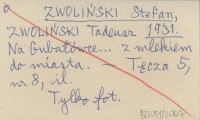 ZWOLIŃSKI Stefan,
ZWOLIŃSKI Tadeusz 1931.
Na Gubałówce... z mlekiem
do miasta. — Tęcza 5,
nr 8, il.
Tylko fot.